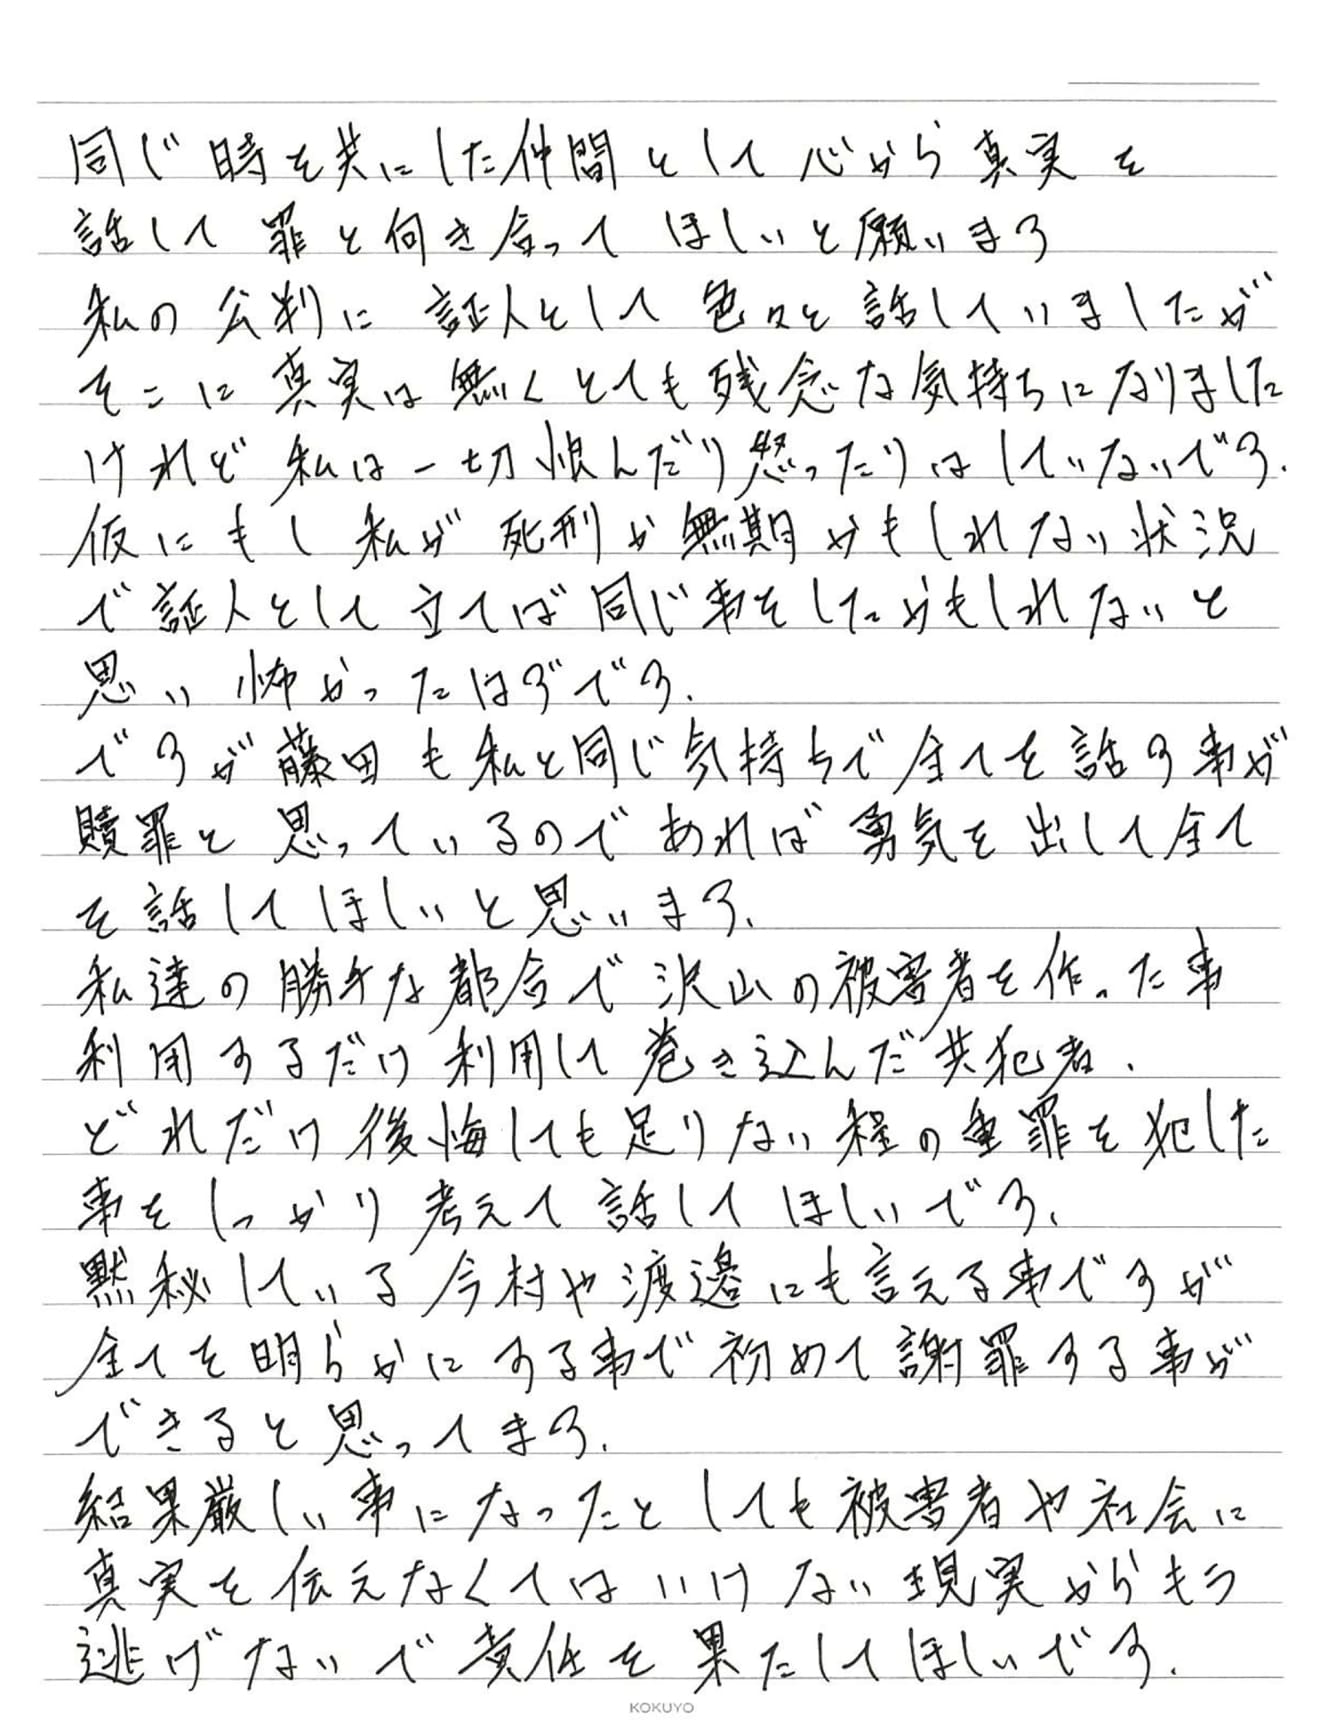 同じ時を共にした仲間として心から真実を
話して罪と向き合ってほしいと願います
私の公判に証人として色々と話していましたが
そこに真実は無くとても残念な気持ちになりました
けれど私は一切恨んだり怒ったりはしていないです.
仮にもし私が死刑か無期かもしれない状況
で証人として立てば同じ事をしたかもしれないと
思い怖かったはずです.
ですが藤田も私と同じ気持ちで全てを話す事が
贖罪と思っているのであれば勇気を出して全て
を話してほしいと思います.
私達の勝手な都合で沢山の被害者を作った事
利用するだけ利用して巻き込んだ共犯者.
どれだけ後悔しても足りない程の重罪を犯した
事をしっかり考えて話してほしいです.
黙秘している今村や渡邉にも言える事ですが
全てを明らかにする事で初めて謝罪する事が
できると思ってます.
結果厳しい事になったとしても被害者や社会に
真実を伝えなくてはいけない現実からもう
逃げないで責任を果たしてほしいです.
KOKUYO